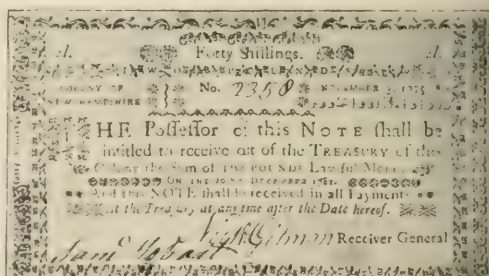 Forty Shillings.
COLONY OF No. 2358 NOVEMBER 3, 1775
NEW HAMPSHIRE
THE Poſſeſſor of this NOTE ſhall be
intitled to receive out of the TREASURY of this
Colony the Sum of TWO POUNDS Lawful Money
ON THE 20TH DECEMBER
And this NOTE ſhall be received in all Payments
at the Treaſury at any time after the Date hereof.
Gilman Receiver General
Saml Hobart